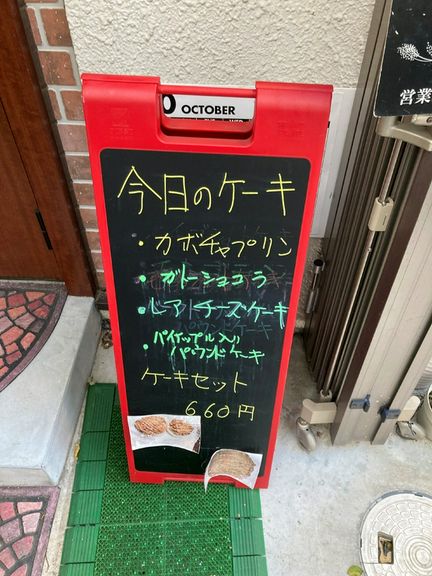 OCTOBER
営業
今日のケーキ
・カボチャプリン
・ガトーショコラ
・レアチーズケーキ
・パイナップル入り
パウンドケーキ
ケーキセット
660円